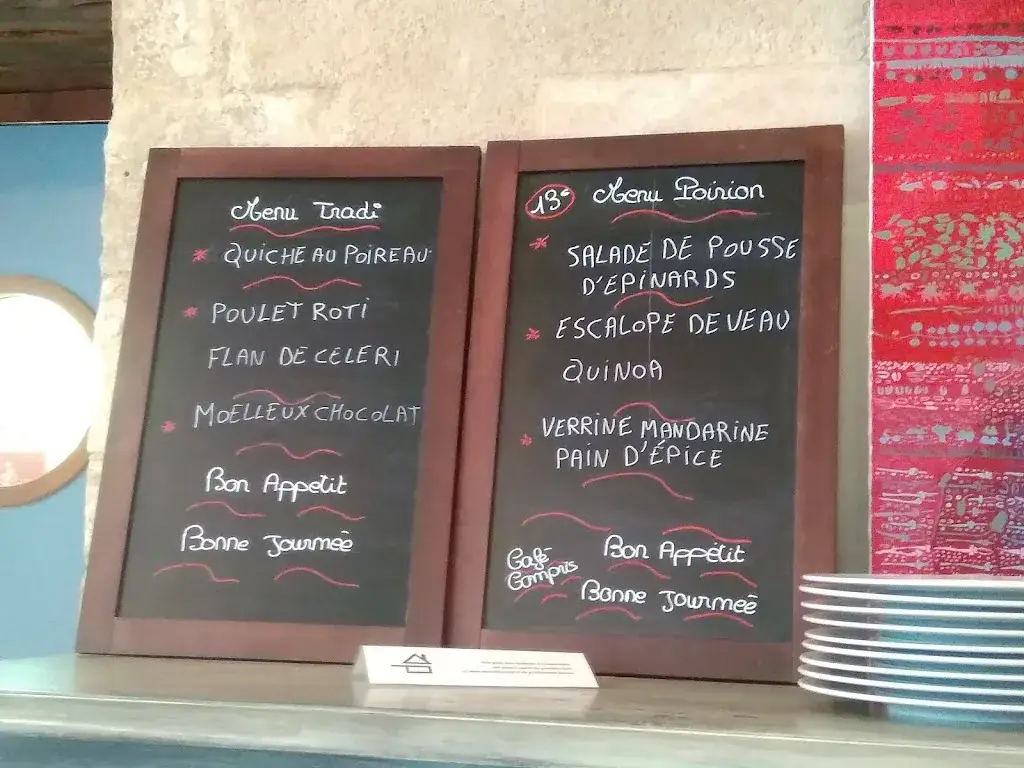 Menu Tradi
* QUICHE AU POIREAU
* POULET ROTI
FLAN DE CELERI
* MOELLEUX CHOCOLAT
Bon Appétit
Bonne Journeé
13€ Menu Poirion
* SALADE DE POUSSE
D'EPINARDS
* ESCALOPE DE VEAU
QUINOA
* VERRINE MANDARINE
PAIN D'ÉPICE
Café
Compris
Bon Appétit
Bonne Journeé